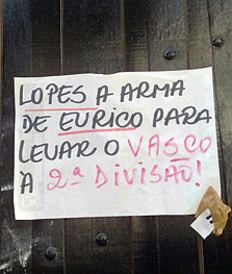 LOPES A ARMA
DE EURICO PARA
LEVAR O VASCO
À 2ª DIVISÃO!